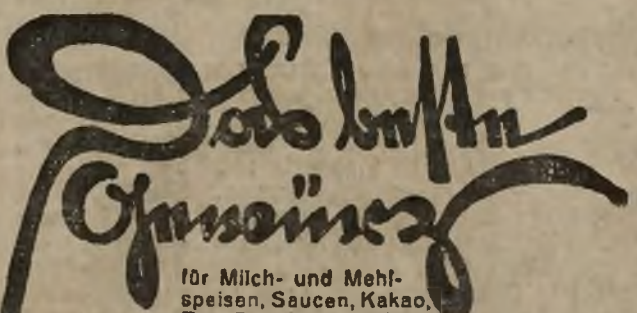 Das beste
Gewürz
für Milch- und Mehl-
speisen, Saucen, Kakao,